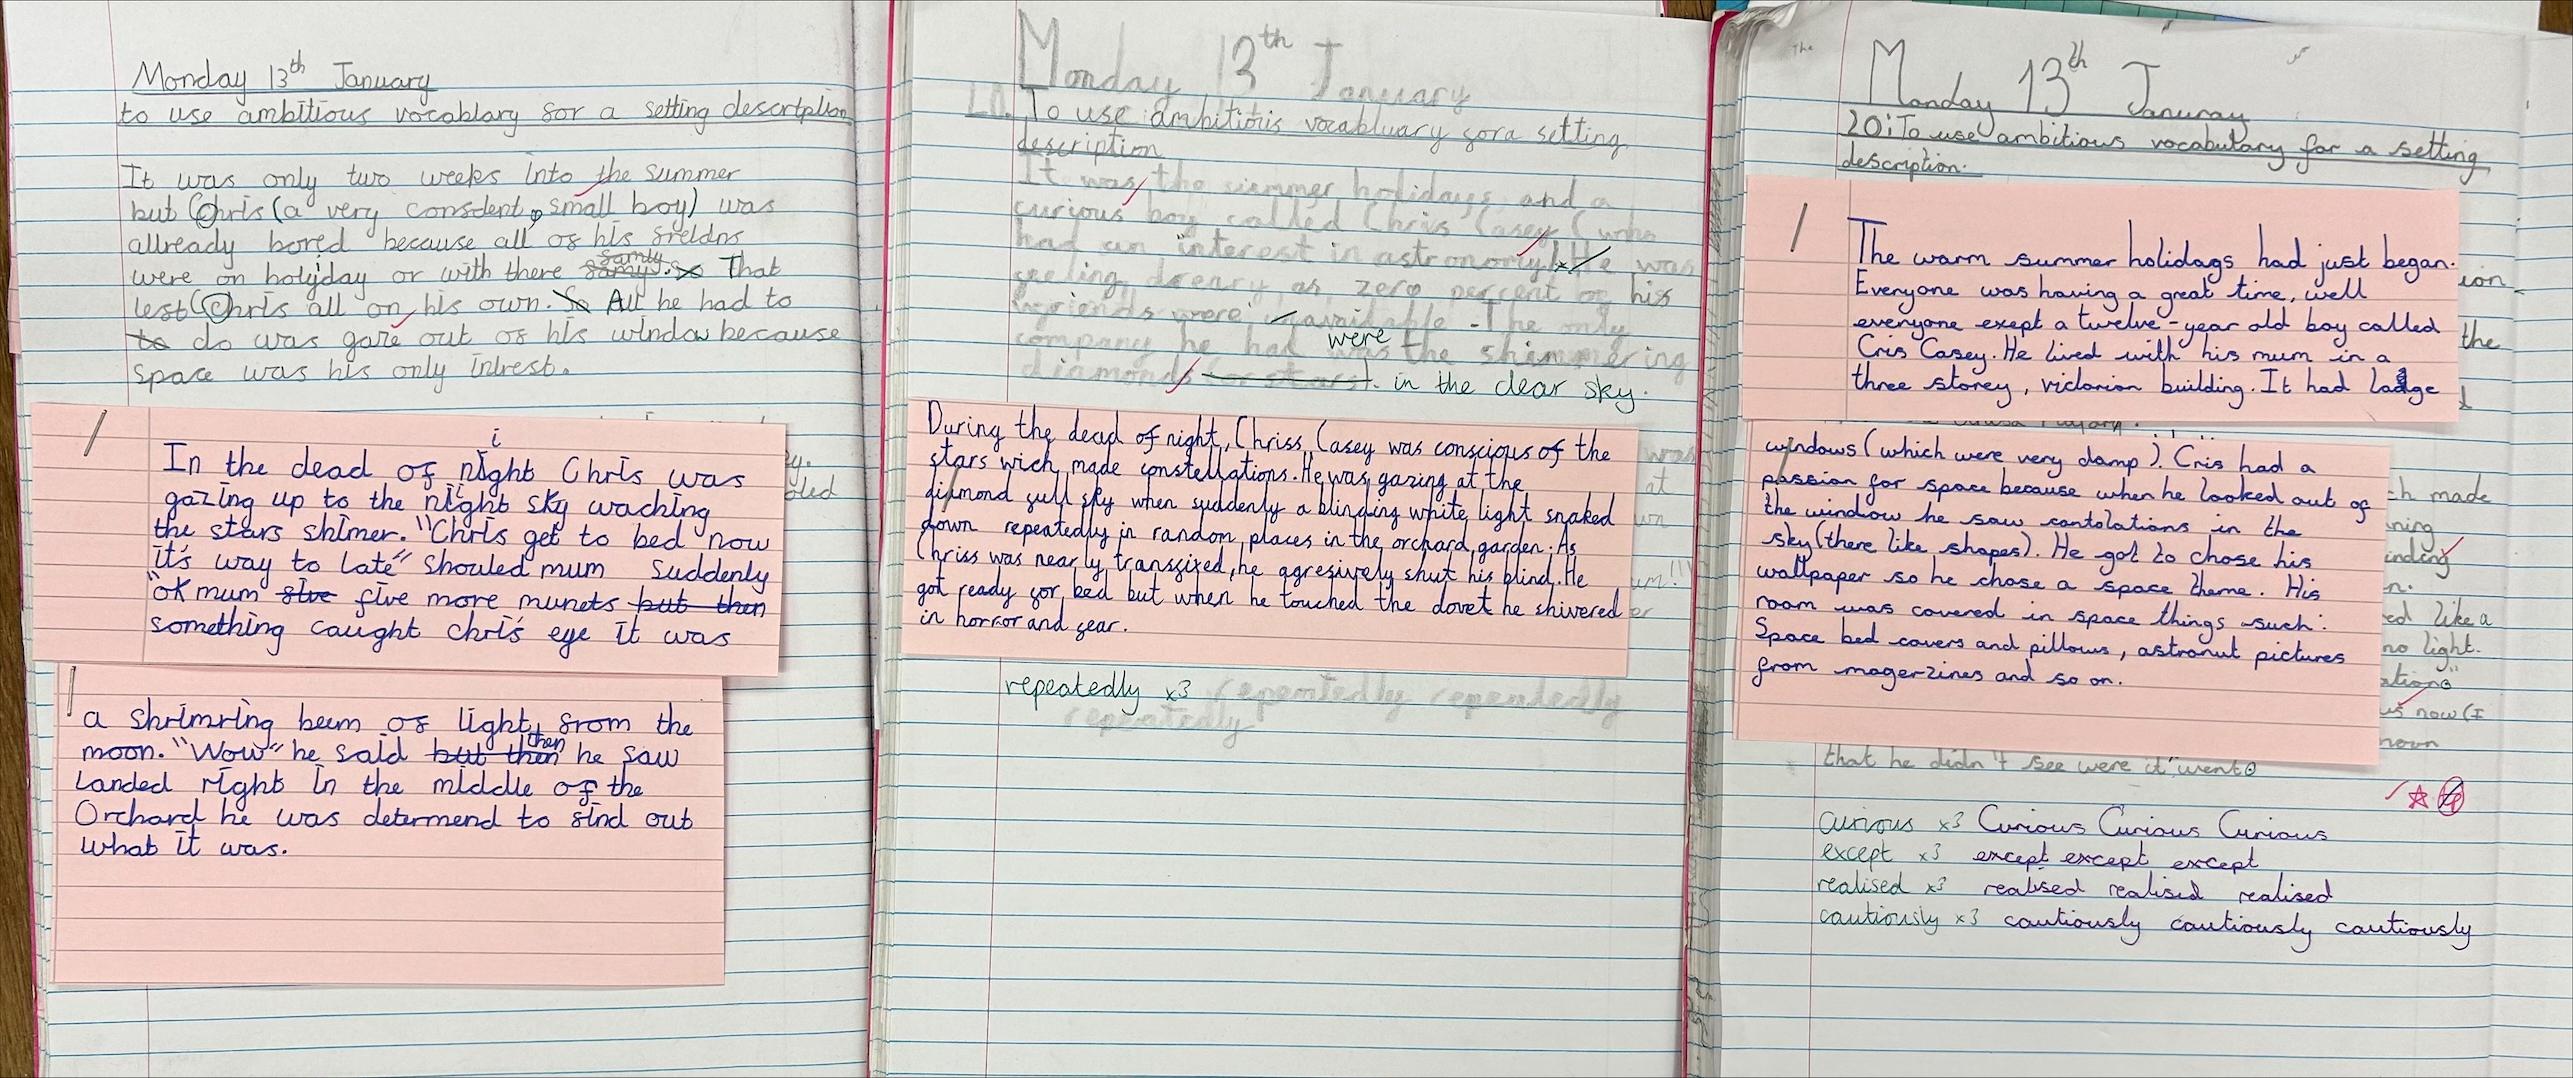 Monday 13th January
to use ambitious vocablary for a setting description
It was only two weeks into the summer
but Chris (a very consdent, small boy) was
allready bored because all of his freidns
were on holyday or with there samy samly. so That
left Chris all on his own. So All he had to
to do was gaze out of his window because
Space was his only intrest.
i
In the dead of night Chris was
gazing up to the night sky waching
the stars shimer. "Chris get to bed now
it's way to late" shouled mum Suddenly
"ok mum five five more munets but then
something caught chris' eye it was
a shrimring beem of light, from the
moon. "Wow" he said but then then he saw
Landed right in the middle of the
Orchard he was determend to find out
what it was.
Monday 13th January
L.O. To use ambitiois vocabluary for a setting
description
It was the summer holidays and a
curious boy called Chris Casey (who
had an interest in astronomy) He was
feeling dreary as zero percent of his
friends were available. The only
company he had was were the shimmering
diamonds (or stars). in the clear sky.
During the dead of night, Chriss Casey was conscious of the
stars wich made constellations. He was gazing at the
diamond full sky when suddenly a blinding white light snaked
down repeatedly in random places in the orchard garden. As
Chriss was nearly transfixed, he agresively shut his blind. He
got ready for bed but when he touched the dovet he shivered
in horror and fear.
repeatedly x3 repeatedly repeatedly
repeatedly
The
Monday 13th Januray
LO: To use ambitious vocabulary for a setting
description.
The warm summer holidags had just began.
Everyone was having a great time, well
everyone exept a twelve-year old boy called
Cris Casey. He lived with his mum in a
three storey, victorion building. It had ladge
windows (which were very damp). Cris had a
passion for space because when he looked out of
the window he saw contolations in the
sky (there like shapes). He got to chose his
wallpaper so he chose a space theme. His
room was covered in space things such:
Space bed covers and pillows, astronut pictures
from magerzines and so on.
the
ch made
like a
no light.
now (I
that he didn't see were it went.
curious x3 Curious Curious Curious
except x3 except except except
realised x3 realised realised realised
cautiously x3 cautiously cautiously cautiously